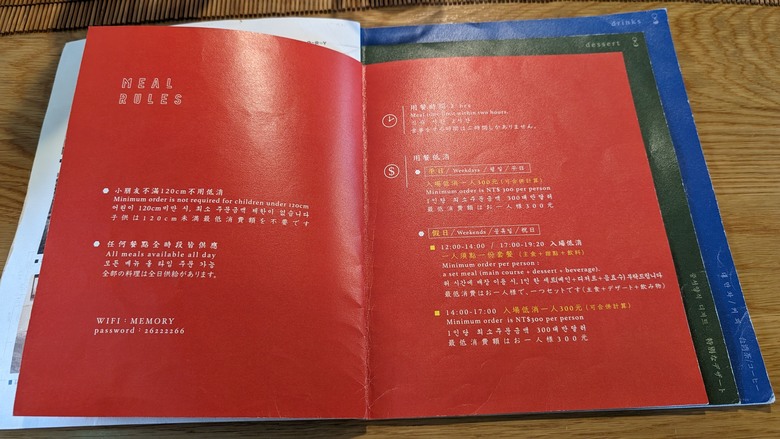 MEAL
RULES
小朋友不滿120cm不用低消
Minimum order is not required for children under 120cm
어린이 120cm미만 시, 최소 주문금액 제한이 없습니다
子供は120cm未満最低消費額を不要です
任何餐點全時段皆供應
All meals available all day
모든 메뉴 올 타임 주문 가능
全部の料理は全日供給があります。
WIFI：MEMORY
password：26222266
drinks
dessert
用餐時間 2 hrs
Meal time limit within two hours.
식사 시간 2시간
食事をする時間は二時間しかありません。
用餐低消
平日/Weekdays/평일/平日
入場低消一人300元(可合併計算)
Minimum order is NT$ 300 per person
1인당 최소주문금액 300대만달러
最低消費額はお一人様300元
假日/Weekends/공휴일/祝日
12:00-14:00 / 17:00-19:20 入場低消
一人須點一份套餐 (主食+甜點+飲料)
Minimum order per person :
a set meal (main course + dessert + beverage).
위 시간에 매장 이용 시, 1인 한 세트(메인+디저트+음료수)부탁드립니다
最低消費はお一人様で、一つセットです(主食+デザート+飲み物)
14:00-17:00 入場低消一人300元(可合併計算)
Minimum order is NT$300 per person
1인당 최소주문금액 300대만달러
最低消費額はお一人様300元
特別なデザート
台湾茶/コーヒー